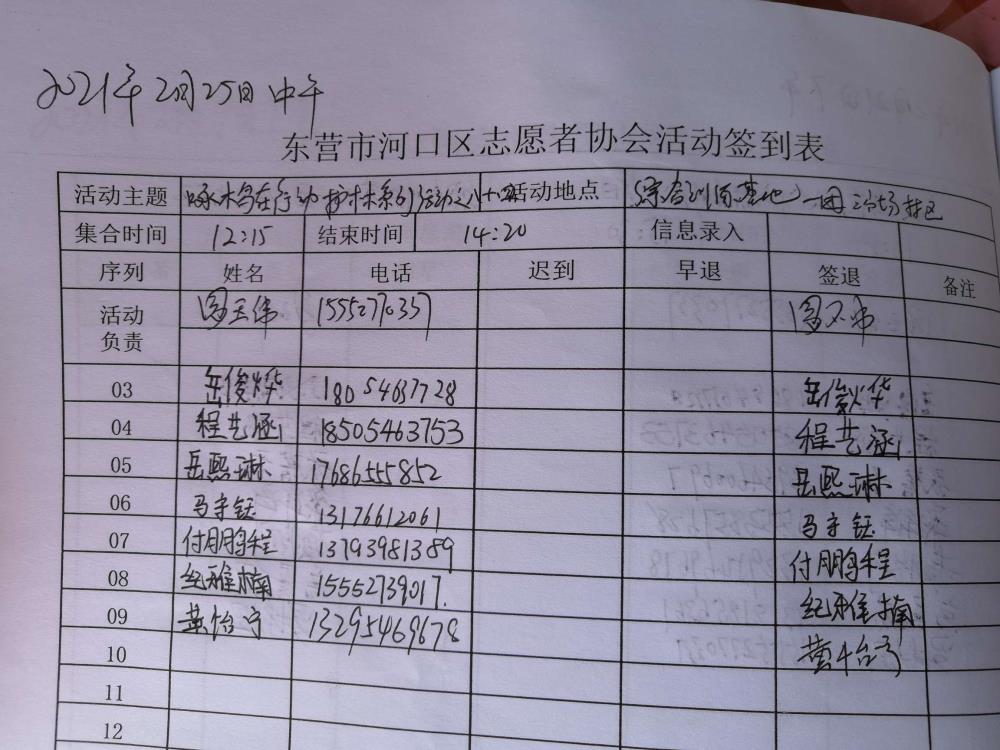 2021年2月25日中午
东营市河口区志愿者协会活动签到表
活动主题 啄木鸟在行动护林系列活动之八十四 活动地点 (综合训练基地)
集合时间 12:15 结束时间 14:20 信息录入
序列 姓名 电话 迟到 早退 签退 备注
活动
负责 15552770337
03 岳俊烨 18054637728 岳俊烨
04 程艺涵 18505463753 程艺涵
05 岳熙琳 17686555852 岳熙琳
06 马宇钰 13176612061 马宇钰
07 付鹏程 13793981389 付鹏程
08 纪雅楠 15552739017. 纪雅楠
09 黄怡宁 13295469678 黄怡宁
10
11
12